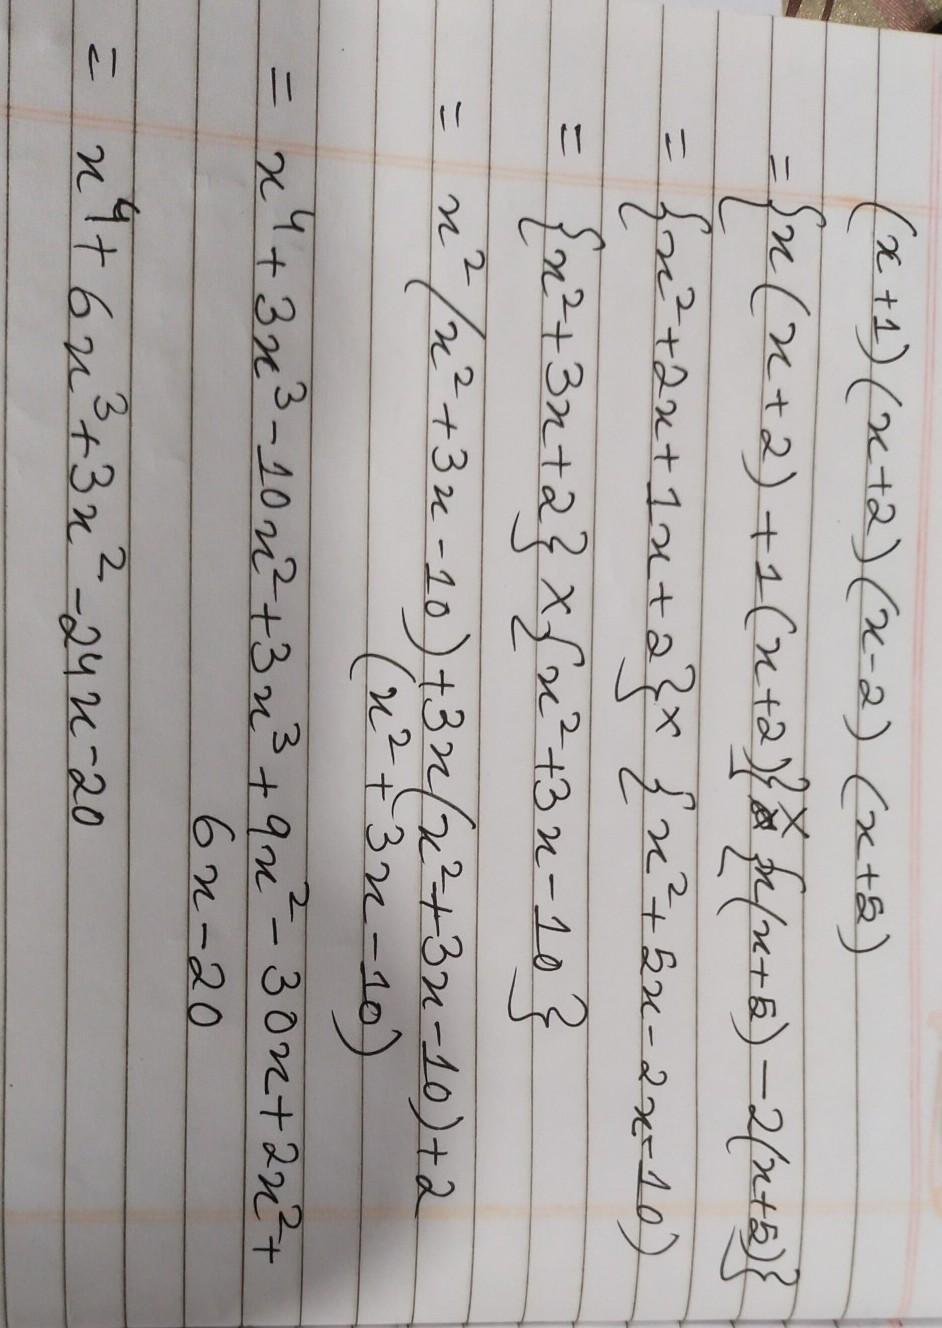 (x+1)(x+2)(x-2)(x+5)
= {x(x+2)+1(x+2)}×{x(x+5)-2(x+5)}
= {x²+2x+1x+2}×{x²+5x-2x-10)
= {x²+3x+2}×{x²+3x-10}
= x²(x²+3x-10)+3x(x²+3x-10)+2
(x²+3x-10)
= x⁴+3x³-10x²+3x³+9x²-30x+2x²+
6x-20
= x⁴+6x³+3x²-24x-20